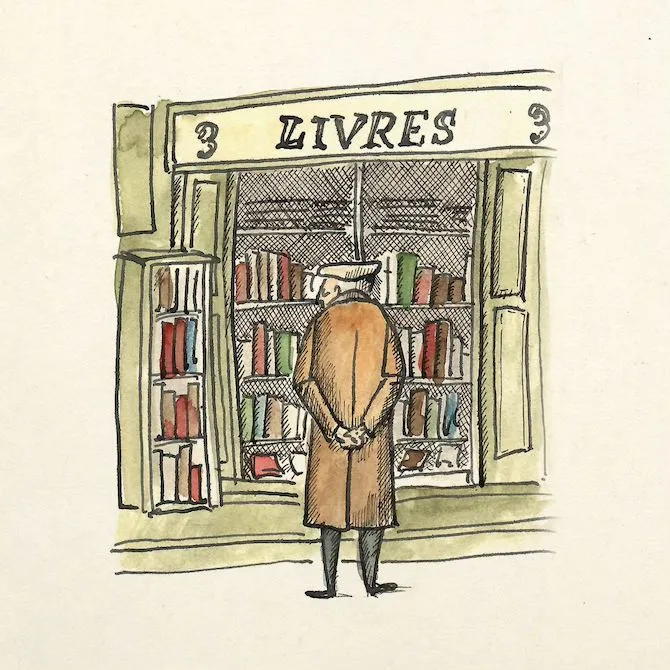 3 LIVRES 3